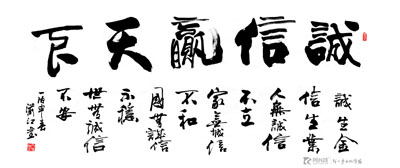 誠信贏天下
誠生金
信生業
人無誠信
不立
家無誠信
不和
國無誠信
不穩
世無誠信
不安